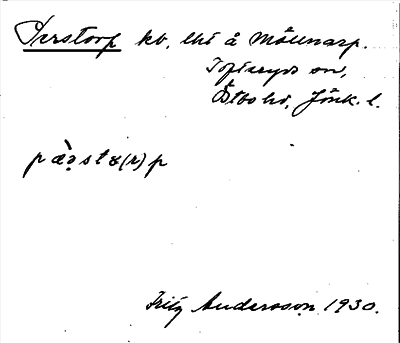 Perstorp kv, lht å Mållnarp.
Tofteryds sn,
Östbo hd, Jönk. l.
pæ̀ə̣stɷ(r)p
Fritz Andersson 1930.